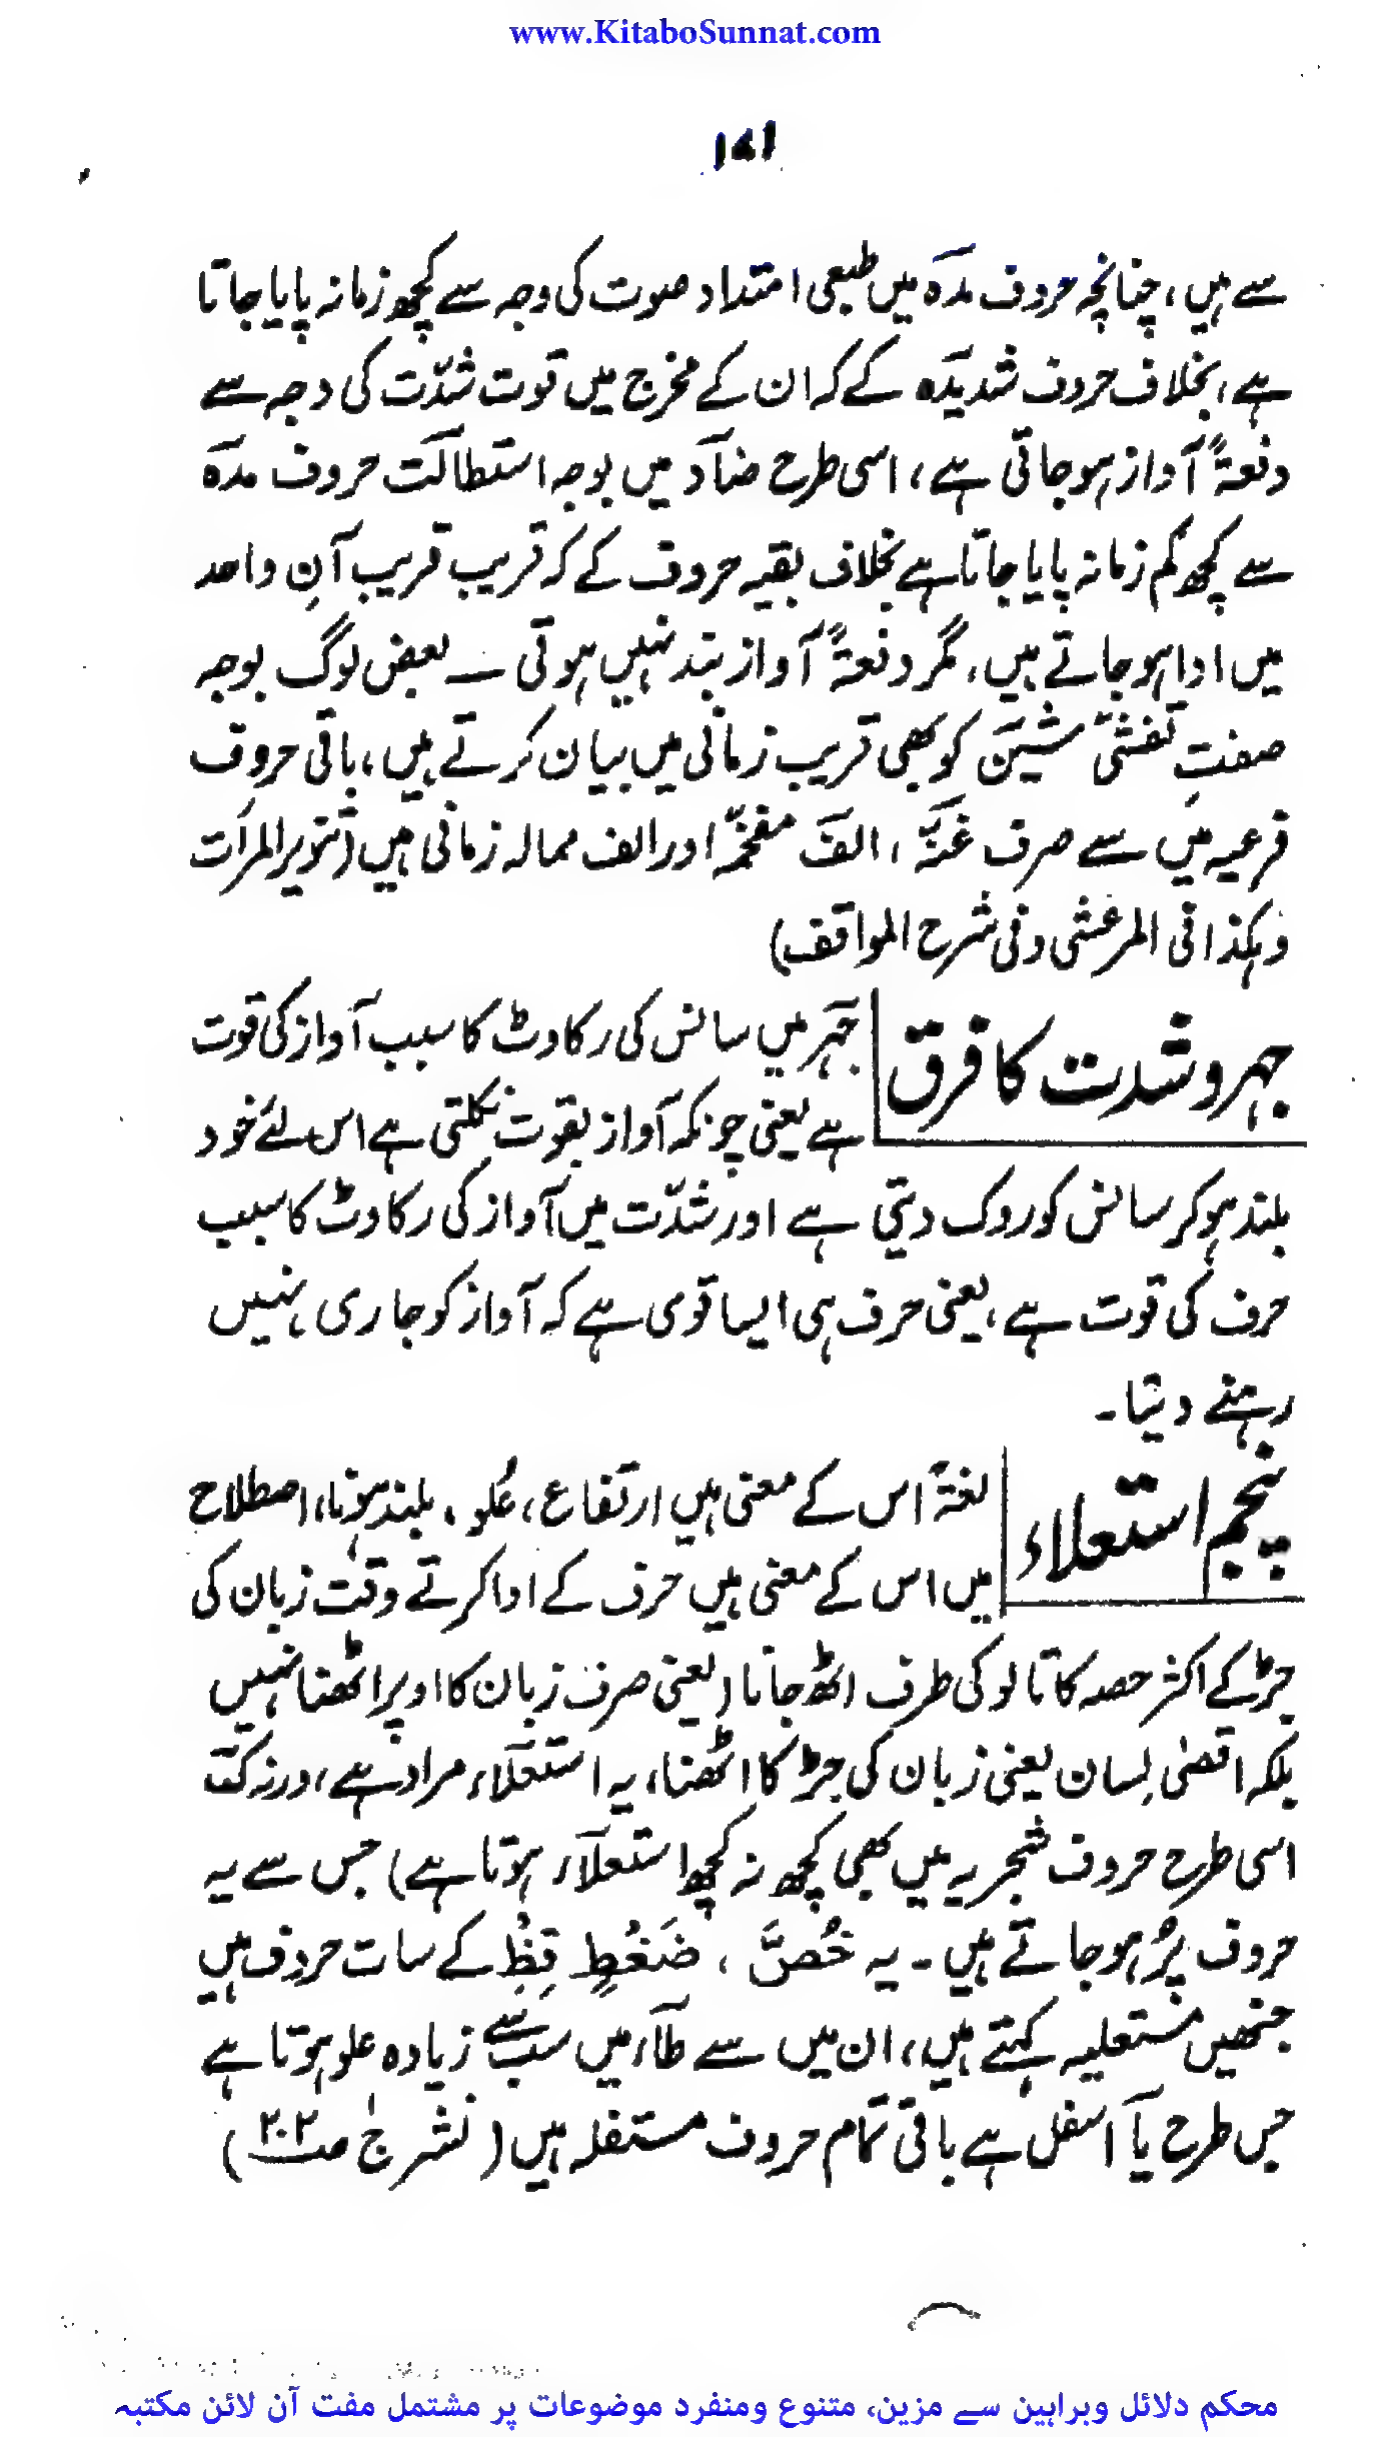 www.KitaboSunnat.com
۱۷۱
سے ہیں، چنانچہ حروف مدّہ میں طبعی امتداد صوت کی وجہ سے کچھ زمانہ پایا جاتا
ہے، بخلاف حروف شدیدہ کے کہ ان کے مخرج میں قوت شدّت کی وجہ سے
دفعۃً آواز ہو جاتی ہے، اسی طرح ضآد میں بوجہ استطالت حروف مدّہ
سے کچھ کم زمانہ پایا جاتا ہے بخلاف بقیہ حروف کے کہ قریب قریب آنِ واحد
میں ادا ہو جاتے ہیں، مگر دفعۃً آواز بند نہیں ہوتی ۔ بعض لوگ بوجہ
صفتِ تفشّی شین کو بھی قریب زمانی میں بیان کرتے ہیں، باقی حروف
فرعیہ میں سے صرف غنّہ، الف مفخمہ اور الف ممالہ زمانی ہیں (تنویر المرات
وہکذا فی المرعشی وفی شرح المواقف)
جہر و شدت کا فرق
جہر میں سانس کی رکاوٹ کا سبب آواز کی قوت
ہے یعنی چونکہ آواز بقوت نکلتی ہے اس لئے خود
بلند ہو کر سانس کو روک دیتی ہے اور شدّت میں آواز کی رکاوٹ کا سبب
حرف کی قوت ہے، یعنی حرف ہی ایسا قوی ہے کہ آواز کو جاری نہیں
رہنے دیتا۔
پنجم استعلاء
لغۃً اس کے معنی ہیں ارتفاع، عُلو، بلند ہونا، اصطلاح
میں اس کے معنی ہیں حرف کے ادا کرتے وقت زبان کی
جڑ کے اکثر حصہ کا تالو کی طرف اٹھ جانا (یعنی صرف زبان کا اوپر اٹھنا نہیں
بلکہ اقصٰی لسان یعنی زبان کی جڑ کا اٹھنا، یہ استعلاء مراد ہے، ورنہ کت
اسی طرح حروف شجریہ میں بھی کچھ نہ کچھ استعلآء ہوتا ہے) جس سے یہ
حروف پُر ہو جاتے ہیں۔ یہ خُصَّ، ضَغْطٍ قِظْ کے سات حروف ہیں
جنھیں مستعلیہ کہتے ہیں، ان میں سے طآء میں سب سے زیادہ علو ہوتا ہے
جس طرح یآ اسفل ہے باقی تمام حروف مستفلہ ہیں (نشر ج۱ ص۲۰۲)
محکم دلائل وبراہین سے مزین، متنوع ومنفرد موضوعات پر مشتمل مفت آن لائن مکتبہ